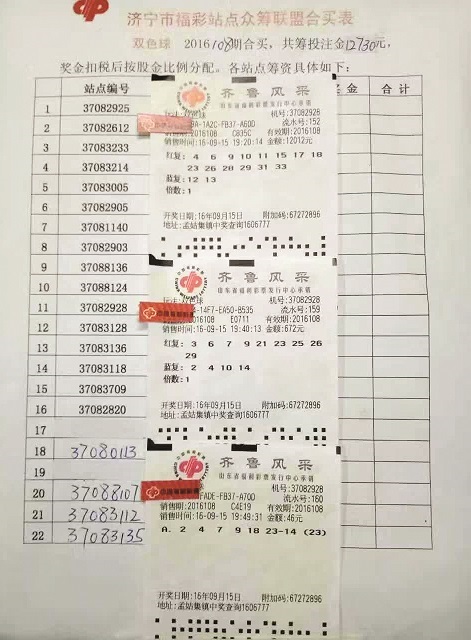 济宁市福彩站点众筹联盟合买表
双色球 2016108期合买,共筹投注金12730元,
奖金扣税后按股金比例分配。各站点筹资具体如下:
站点编号 奖 金 合 计
1 37082925
2 37082612
3 37083233
4 37083214
5 37083005
6 37082905
7 37081140
8 37082903
9 37088136
10 37088124
11 37082928
12 37083128
13 37083136
14 37083118
15 37083709
16 37082820
17
18 37080113
19
20 37088107
21 37083112
22 37083135
齐鲁风采
山东省福利彩票发行中心承销
机号:37082928
-1A2C-FB37-A60D 流水号:152
销售期:2016108 C835C 有效期:2016108
销售时间:16-09-15 19:20:14 金额:12012元
红复: 4 6 9 10 11 15 17 18
23 26 28 29 31 33
蓝复: 12 13
倍数:1
开奖日期:16年09月15日 附加码:67272896
地址:孟姑集镇中奖查询1606777
齐鲁风采
山东省福利彩票发行中心承销
玩法:双色球 机号:37082928
-14F7-EA50-B535 流水号:159
2016108 E0711 有效期:2016108
销售时间:16-09-15 19:40:13 金额:672元
红复: 3 6 7 9 21 23 25 26
29
蓝复: 2 4 10 14
倍数:1
开奖日期:16年09月15日 附加码:67272896
地址:孟姑集镇中奖查询1606777
齐鲁风采
山东省福利彩票发行中心承销
机号:37082928
FADE-FB37-A70D 流水号:160
销售期:2016108 C4E19 有效期:2016108
销售时间:16-09-15 19:49:31 金额:46元
A. 2 4 7 9 18 23-14 (23)
开奖日期:16年09月15日 附加码:67272896
地址:孟姑集镇中奖查询1606777